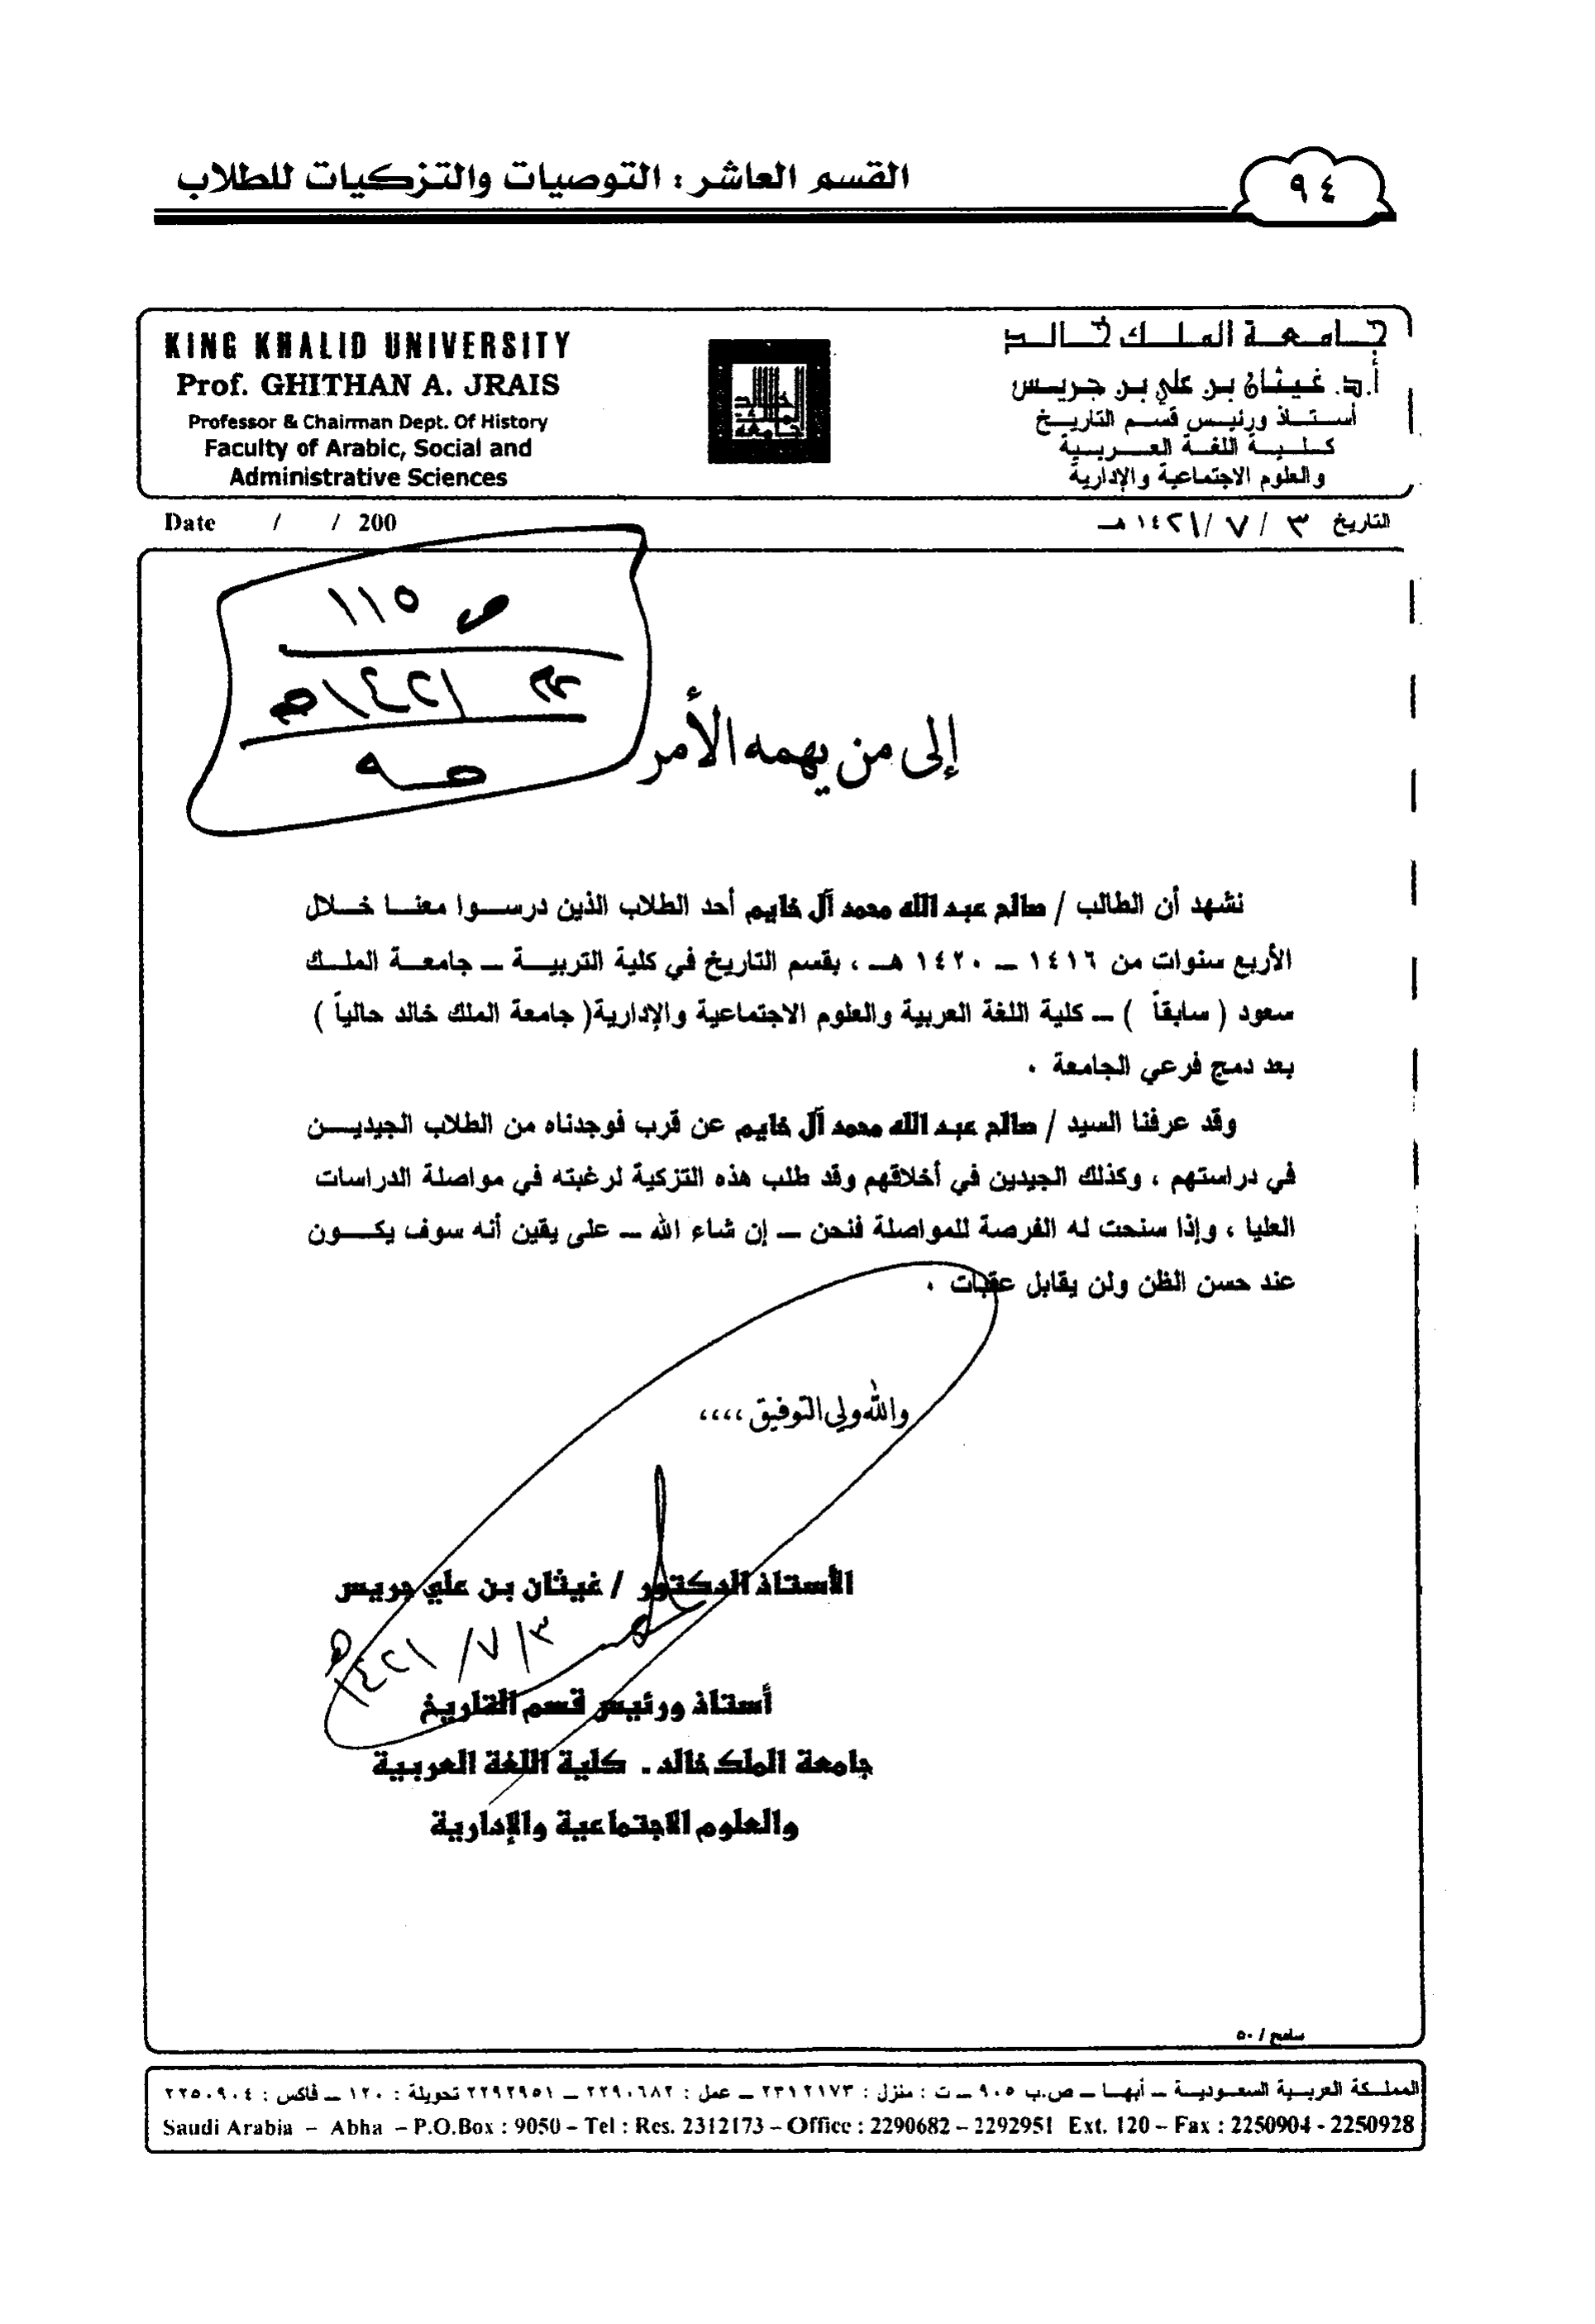 القسم العاشر: التوصيات والتزكيات للطلاب
٩٤
KING KHALID UNIVERSITY
Prof. GHITHAN A. JRAIS
Professor & Chairman Dept. Of History
Faculty of Arabic, Social and
Administrative Sciences
جامعة الملك خالد
أ.د. غيثان بن علي بن جريس
أستاذ ورئيس قسم التاريخ
كلية اللغة العربية
والعلوم الاجتماعية والإدارية
Date / / 200
التاريخ ٣ / ٧ / ١٤٢١ هـ
ص ١١٥
١٤٢١هـ
إلى من يهمه الأمر
نشهد أن الطالب / صالح عبد الله محمد آل خايم أحد الطلاب الذين درسوا معنا خلال
الأربع سنوات من ١٤١٦ – ١٤٢٠ هـ ، بقسم التاريخ في كلية التربية – جامعة الملك
سعود ( سابقاً ) – كلية اللغة العربية والعلوم الاجتماعية والإدارية( جامعة الملك خالد حالياً )
بعد دمج فرعي الجامعة .
وقد عرفنا السيد / صالح عبد الله محمد آل خايم عن قرب فوجدناه من الطلاب الجيدين
في دراستهم ، وكذلك الجيدين في أخلاقهم وقد طلب هذه التزكية لرغبته في مواصلة الدراسات
العليا ، وإذا سنحت له الفرصة للمواصلة فنحن – إن شاء الله – على يقين أنه سوف يكون
عند حسن الظن ولن يقابل عقبات .
والله ولي التوفيق ،،،،
الأستاذ الدكتور / غيثان بن علي جريس
٣ / ٧ / ١٤٢١هـ
أستاذ ورئيس قسم التاريخ
جامعة الملك خالد . كلية اللغة العربية
والعلوم الاجتماعية والإدارية
سامح / ٥٠
المملكة العربية السعودية – أبها – ص.ب ٩٠٥ – ت : منزل : ٢٣١٢١٧٣ – عمل : ٢٢٩٠٦٨٢ – ٢٢٩٢٩٥١ تحويلة : ١٢٠ – فاكس : ٢٢٥٠٩٠٤
Saudi Arabia – Abha – P.O.Box : 9050 – Tel : Res. 2312173 – Office : 2290682 – 2292951 Ext. 120 – Fax : 2250904 - 2250928